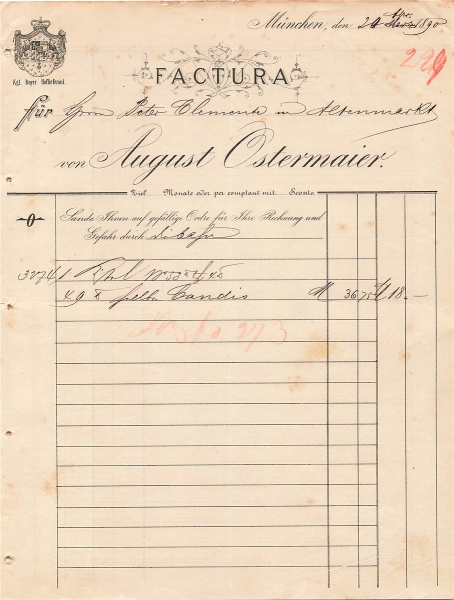 München, den 24 Apr. März 1890
229
Kgl. Bayer. Hoflieferant.
FACTURA
für Herrn Pater Clemente in Altenmarkt
von August Ostermaier.
Ziel Monate oder per comptant mit Sconto.
Sende Ihnen auf gefällige Ordre für Ihre Rechnung und
Gefahr durch die Bahn
3274 1
49 gelb Candis M 36.75 18.—